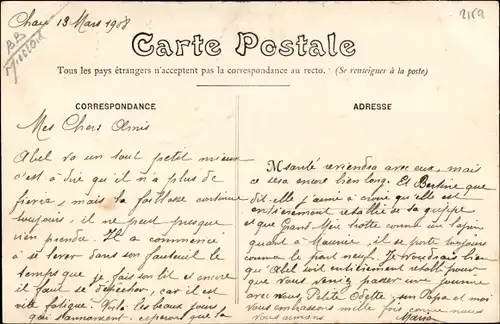 Chaux 13 Mars 1908
2159
Carte Postale
Tous les pays étrangers n'acceptent pas la correspondance au recto. (Se renseigner à la poste)
CORRESPONDANCE
Mes Chers Amis
Abel va un tout petit mieux
c'est à dire qu'il n'a plus de
fièvre, mais la faiblesse continue
toujours, il ne peut presque
rien prendre. Il a commencé
à se lever dans son fauteuil le
temps que je fais son lit et encore
il faut se dépêcher, car il est
vite fatigué. Voilà les beaux jours
qui s'annoncent espérons que la
ADRESSE
santé reviendra avec eux, mais
ce sera encore bien long. Et Berthine que
dit elle j'aime à croire qu'elle est
entièrement rétablie de la grippe
et que Grand Mère trotte comme un lapin
quant à Maurice, il se porte toujours
comme le pont neuf. Je voudrais bien
qu'Abel soit entièrement rétabli pour
que vous veniez passer une journée
avec nous Petite Odette, son Papa et moi
vous embrassons mille fois comme nous
vous aimons Maria